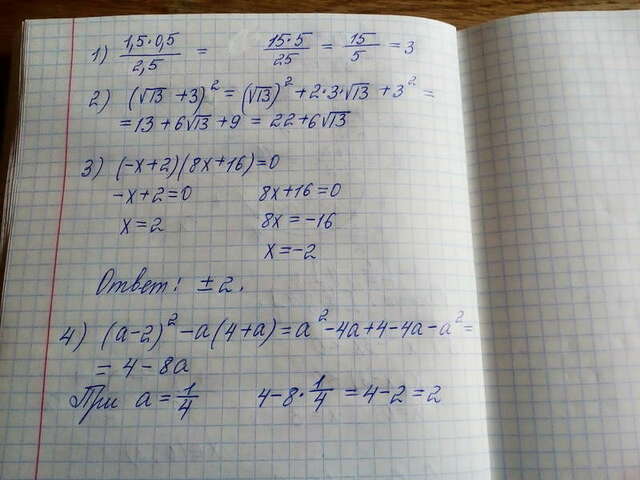 1) (1,5·0,5)/2,5 = (15·5)/25 = 15/5 = 3
2) (√13 + 3)² = (√13)² + 2·3·√13 + 3² =
= 13 + 6√13 + 9 = 22 + 6√13
3) (-x+2)(8x+16)=0
-x+2=0 8x+16=0
x=2 8x=-16
x=-2
Ответ: ±2.
4) (a-2)² - a(4+a) = a² - 4a + 4 - 4a - a² =
= 4 - 8a
При a = 1/4 4 - 8·1/4 = 4 - 2 = 2